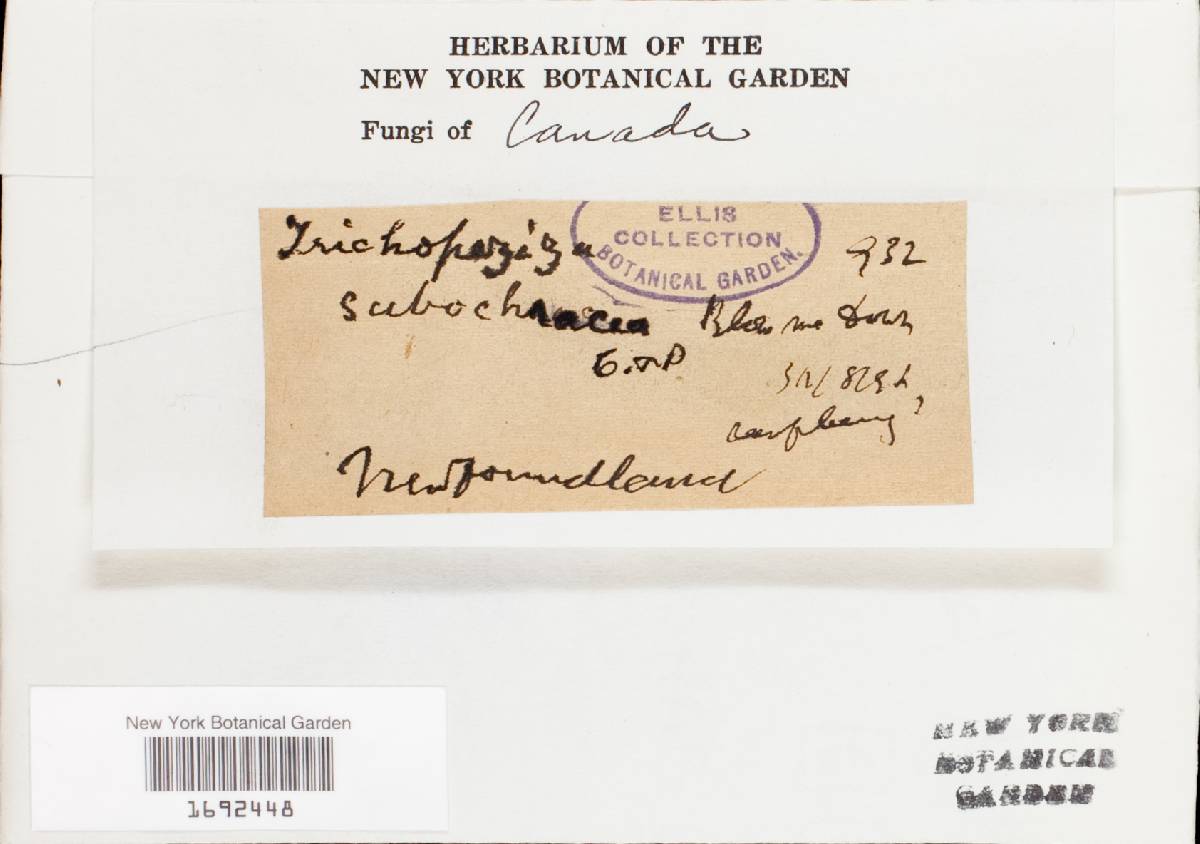 HERBARIUM OF THE
NEW YORK BOTANICAL GARDEN
Fungi of Canada
ELLIS
COLLECTION
BOTANICAL GARDEN.
Trichopeziza
subochracea
E. & P
932
Blow me Down
raspberry?
Newfoundland
New York Botanical Garden
1692448
NEW YORK
BOTANICAL
GARDEN